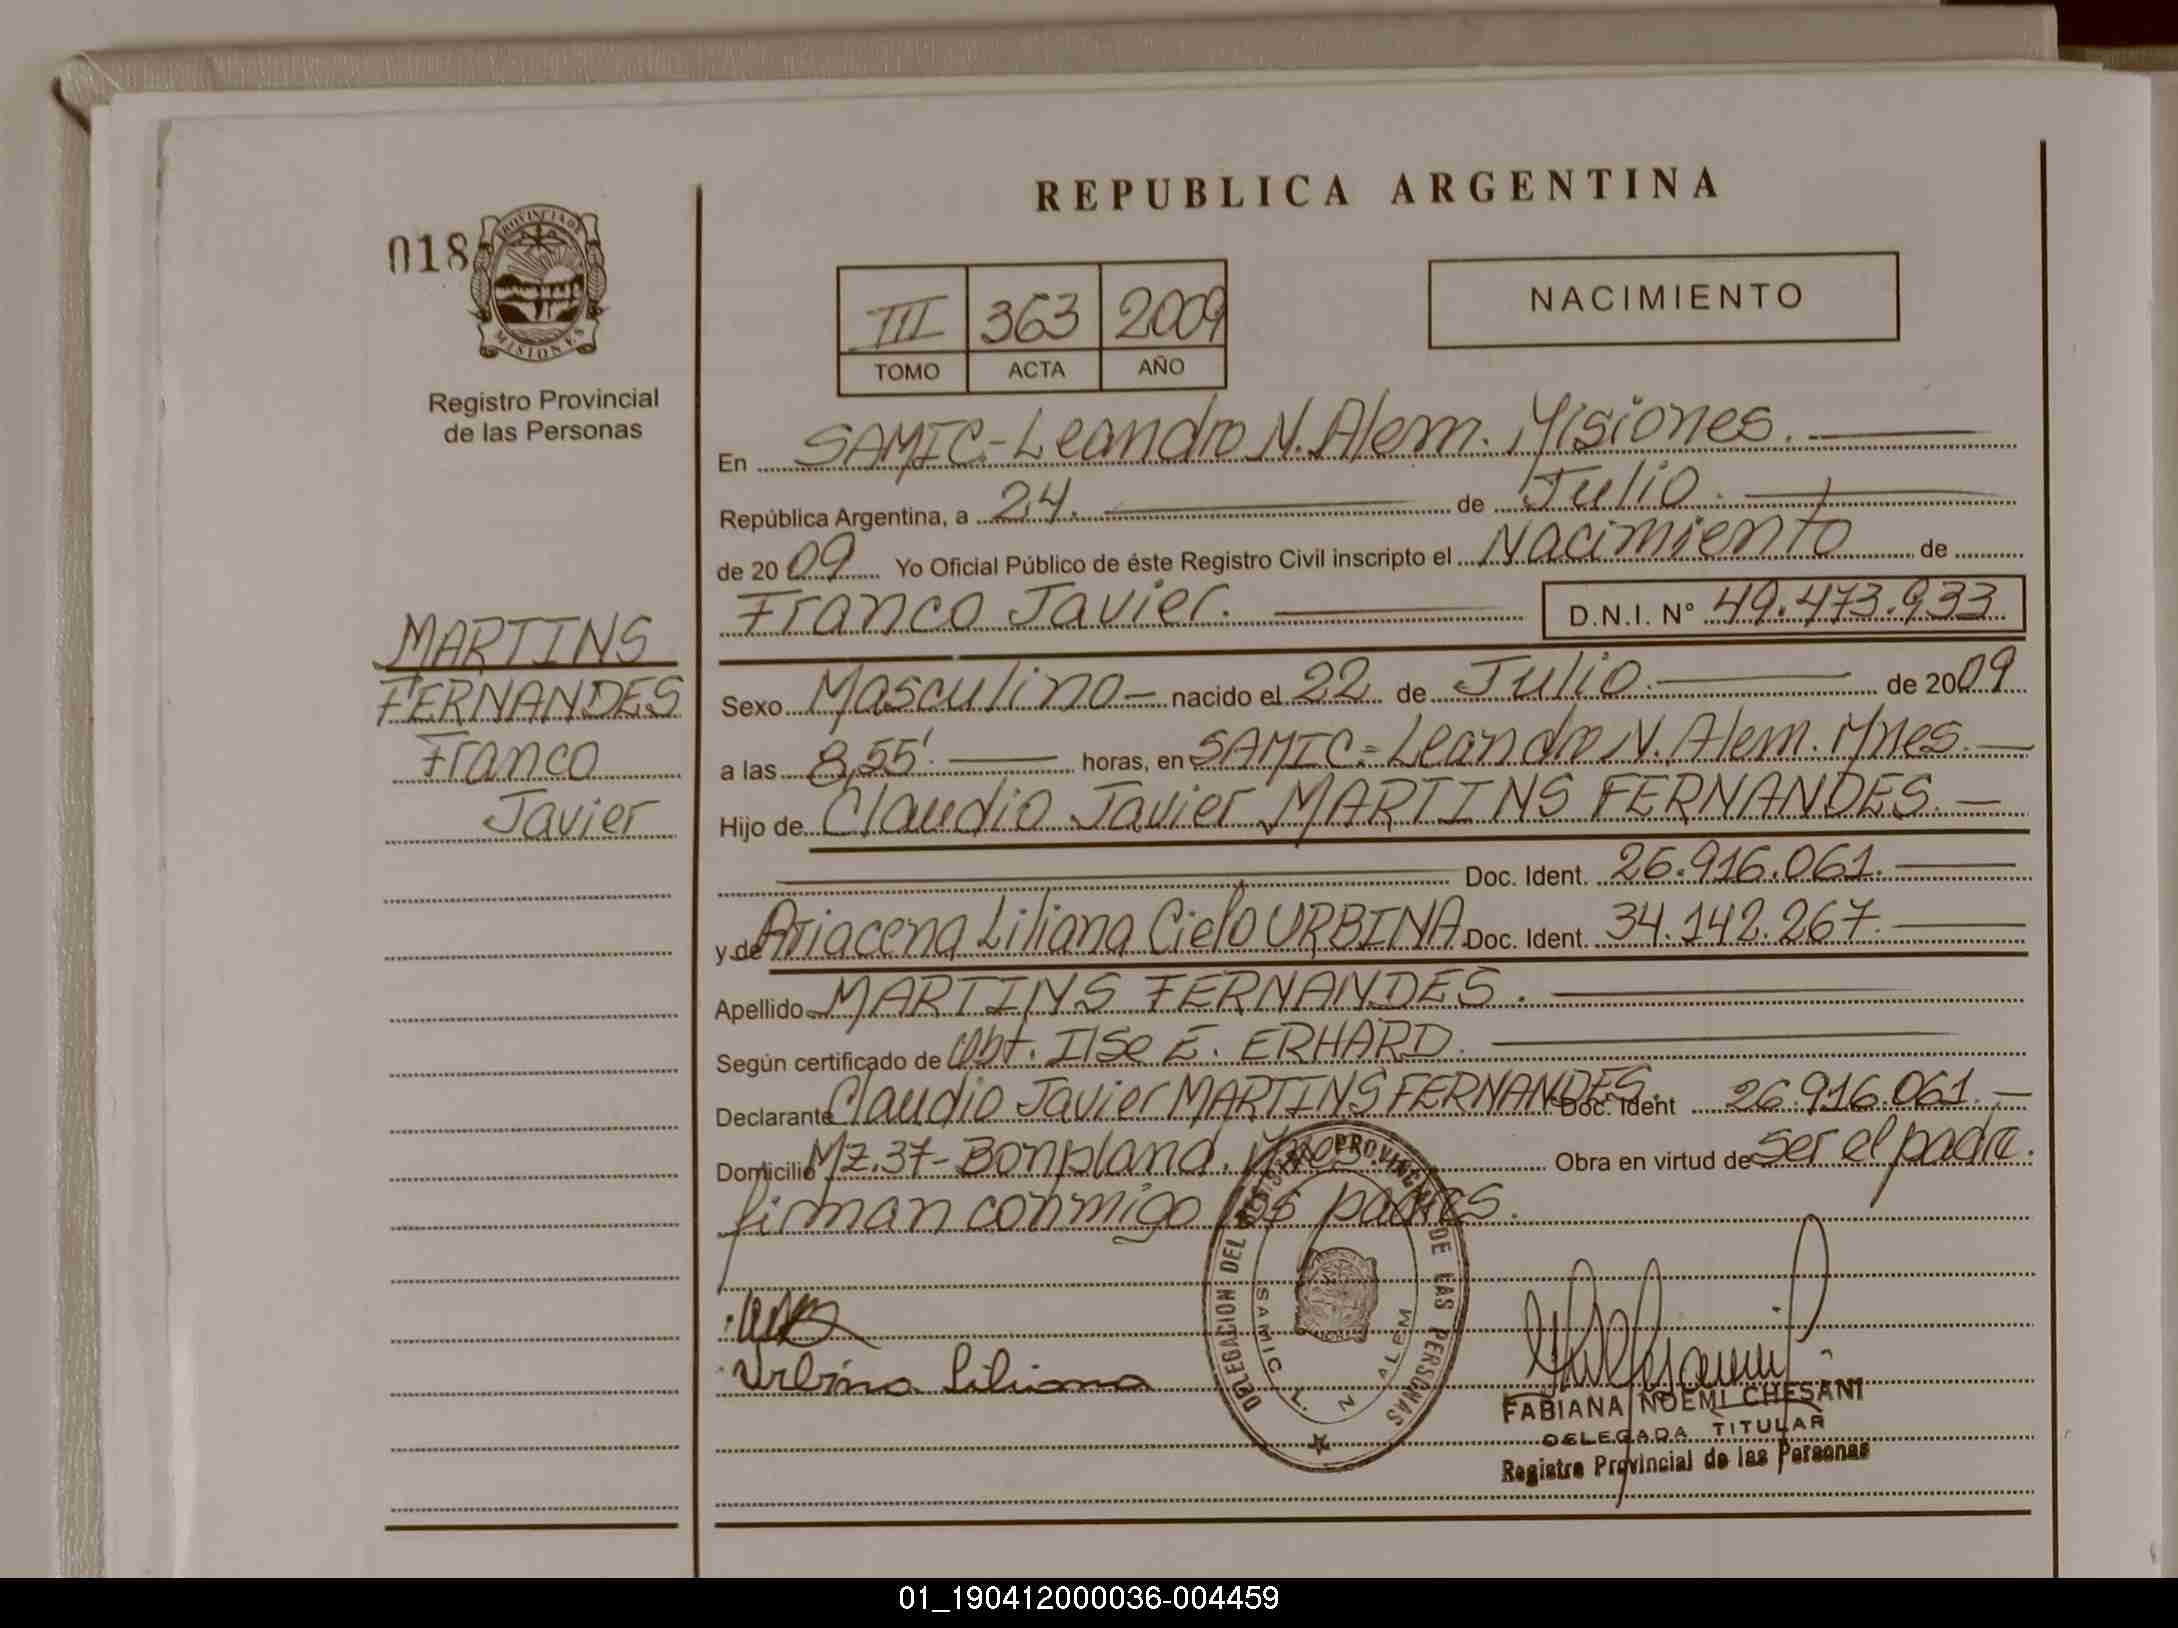 REPUBLICA ARGENTINA
018
PROVINCIA DE
MISIONES
Registro Provincial
de las Personas
III 363 2009
TOMO ACTA AÑO
NACIMIENTO
En SAMIC.-Leandro N. Alem. Misiones.
República Argentina, a 24. de Julio.
de 2009 Yo Oficial Público de éste Registro Civil inscripto el Nacimiento de
Franco Javier. D.N.I. Nº 49.473.933
MARTINS
FERNANDES
Franco
Javier
Sexo Masculino nacido el 22 de Julio. de 2009
a las 8,55'. horas, en SAMIC.=Leandro N. Alem. Mnes.
Hijo de Claudio Javier MARTINS FERNANDES.
Doc. Ident. 26.916.061.
y de Ariacena Liliana Cielo URBINA Doc. Ident. 34.142.267.
Apellido MARTINS FERNANDES.
Según certificado de Obt. Ilse E. ERHARD.
Declarante Claudio Javier MARTINS FERNANDES. Doc. Ident 26.916.061.
Domicilio Mz.37- Bonpland. Mnes Obra en virtud de ser el padre.
firman conmigo los padres.
Urbina Liliana
DELEGACION DEL REGISTRO PROVINCIAL DE LAS PERSONAS
SAMIC L. N ALEM
FABIANA NOEMI CHESANI
DELEGADA TITULAR
Registro Provincial de las Personas
01_190412000036-004459